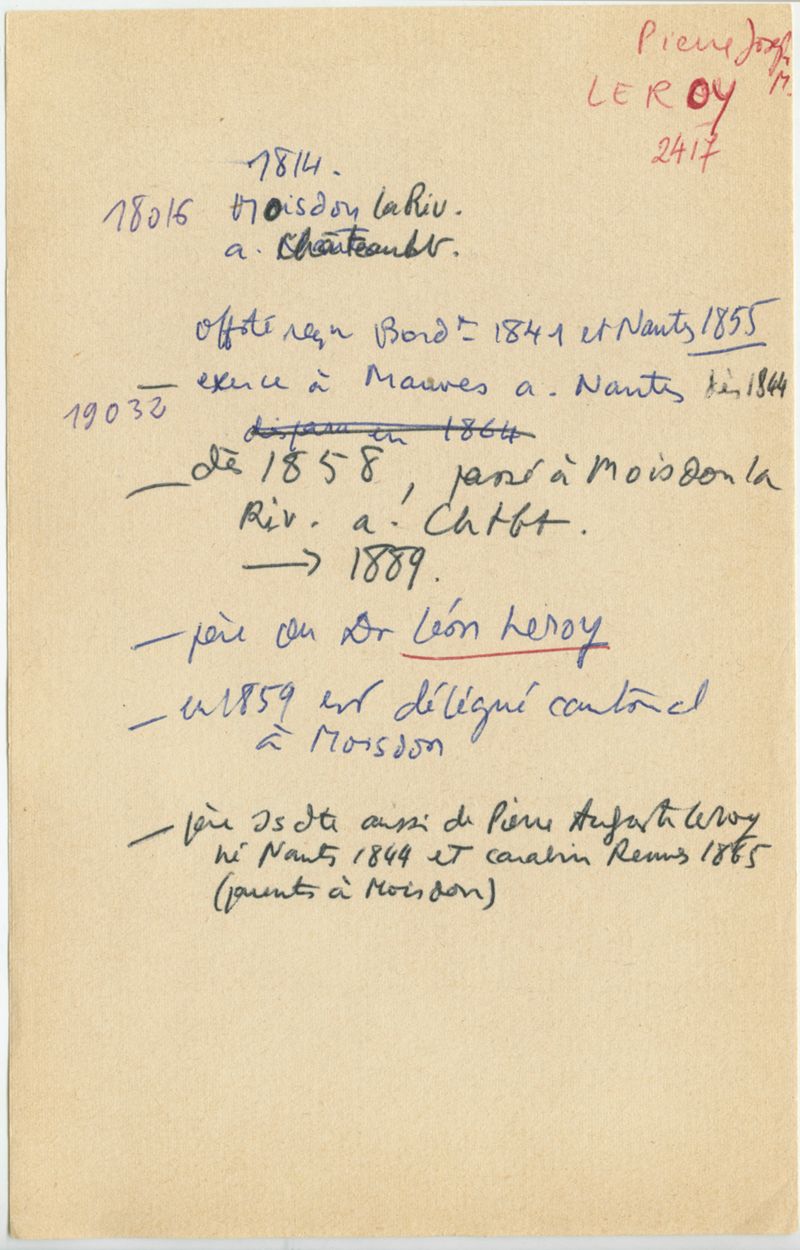 Pierre Joseph
M.
LEROY
2417
1814.
18016 Moisdon la Riv.
a. Châteaubt.
offté reçu Bordx 1841 et Nantes 1855
— exerce à Mauves a. Nantes dès 1844
19032
disparu en 1864
— dès 1858, passé à Moisdon la
Riv. a. Chtbt.
→ 1889.
— père du Dr Léon Leroy
— en 1859 est délégué cantonal
à Moisdon
— père Is dte aussi de Pierre Auguste Leroy
né Nantes 1844 et carabin Rennes 1865
(parents à Moisdon)